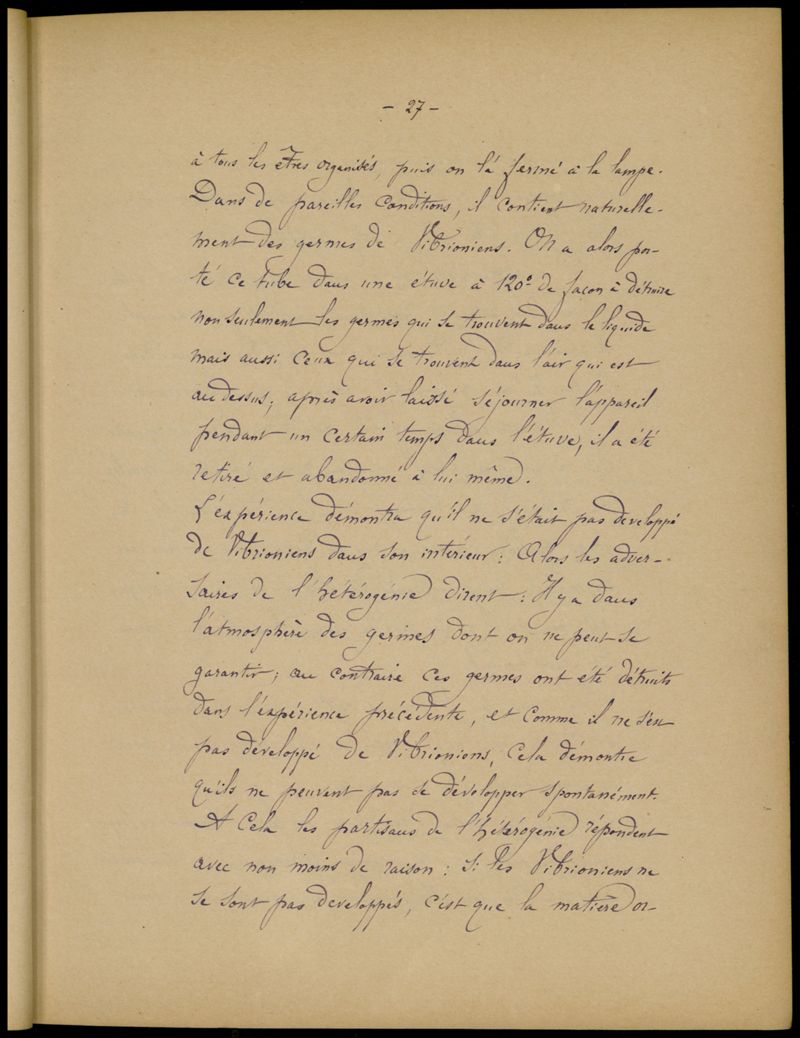 - 27 -
à tous les êtres organisés, puis on l'a fermé à la lampe.
Dans de pareilles conditions, il contient naturelle-
ment des germes de Vibrioniens. On a alors por-
té ce tube dans une étuve à 120° de façon à détruire
non seulement les germes qui se trouvent dans le liquide
mais aussi ceux qui se trouvent dans l'air qui est
au dessus; après avoir laissé séjourner l'appareil
pendant un certain temps dans l'étuve, il a été
retiré et abandonné à lui même.
L'expérience démontra qu'il ne s'était pas développé
de Vibrioniens dans son intérieur: Alors les adver-
saires de l'hétérogénie dirent: Il y a dans
l'atmosphère des germes dont on ne peut se
garantir; au contraire ces germes ont été détruits
dans l'expérience précédente, et comme il ne s'est
pas développé de Vibrioniens, cela démontre
qu'ils ne peuvent pas se développer spontanément.
A cela les partisans de l'hétérogénie répondent
avec non moins de raison: si les Vibrioniens ne
se sont pas developpés, c'est que la matière or-